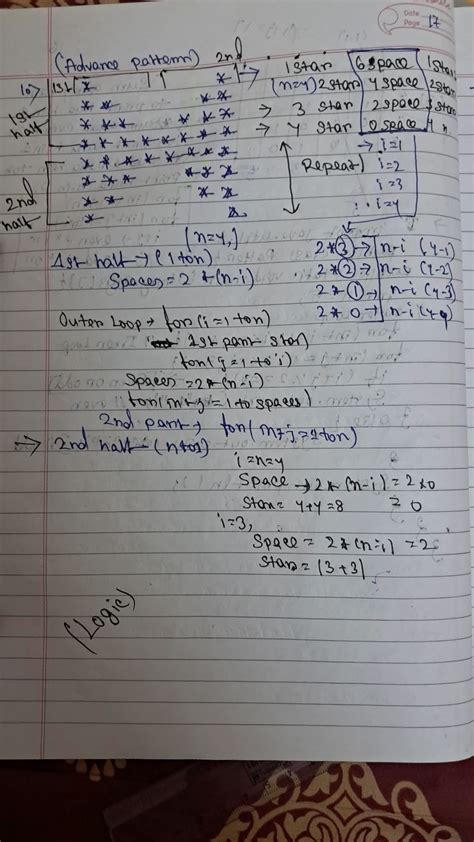 Date
Page 17
(Advance pattern) 2nd
10 → 1st * * → 1 star 6 space 1 star
1st half ** ** (n=4) 2 star 4 space 2 star
*** *** → 3 star 2 space 3 star
******** → 4 star 0 space 4
2nd half ******** → i=1
*** *** Repeat i=2
** ** i=3
* * i=4
(n=4,)
1st half → (1 to n) 2*(3) → n-i (4-1)
Spaces = 2*(n-i) 2*(2) → n-i (4-2)
2*(1) → n-i (4-3)
2*0 → n-i (4-4)
Outer Loop → for(i=1 to n)
1st part star)
for(j=1 to i)
Spaces = 2*(n-i)
for(int j=1 to spaces)
2nd part → for(int j=1 to n)
→ 2nd half → (n to 1)
i=n=4
Space → 2*(n-i) = 2*0
Star = 4+4=8 = 0
i=3,
Space = 2*(n-i) = 2
Star = (3+3)
(Logic)